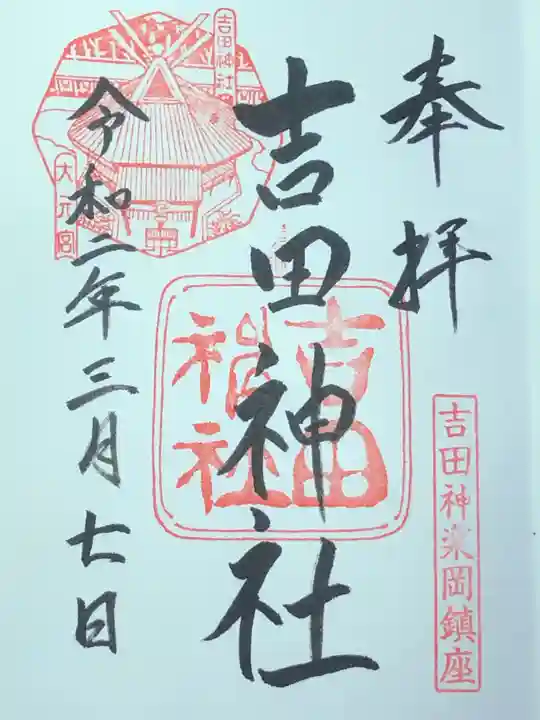 奉拝
吉田神楽岡鎮座
吉田神社
吉田
神社
吉田神社
大元宮
令和二年三月七日